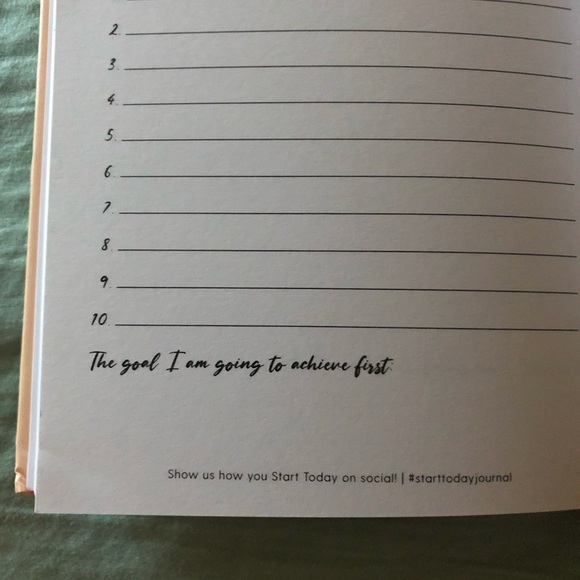 2.
3.
4.
5.
6.
7.
8.
9.
10.
The goal I am going to achieve first:
Show us how you Start Today on social! | #starttodayjournal